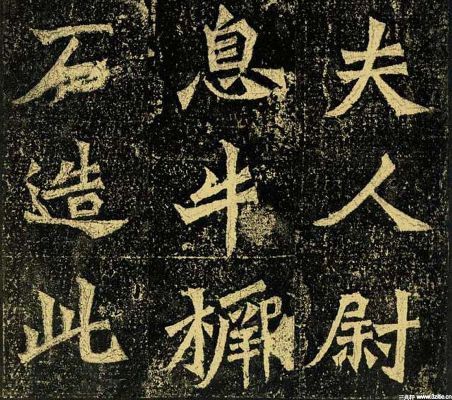 夫人尉
息牛橛
石造此
www.3zitie.cn